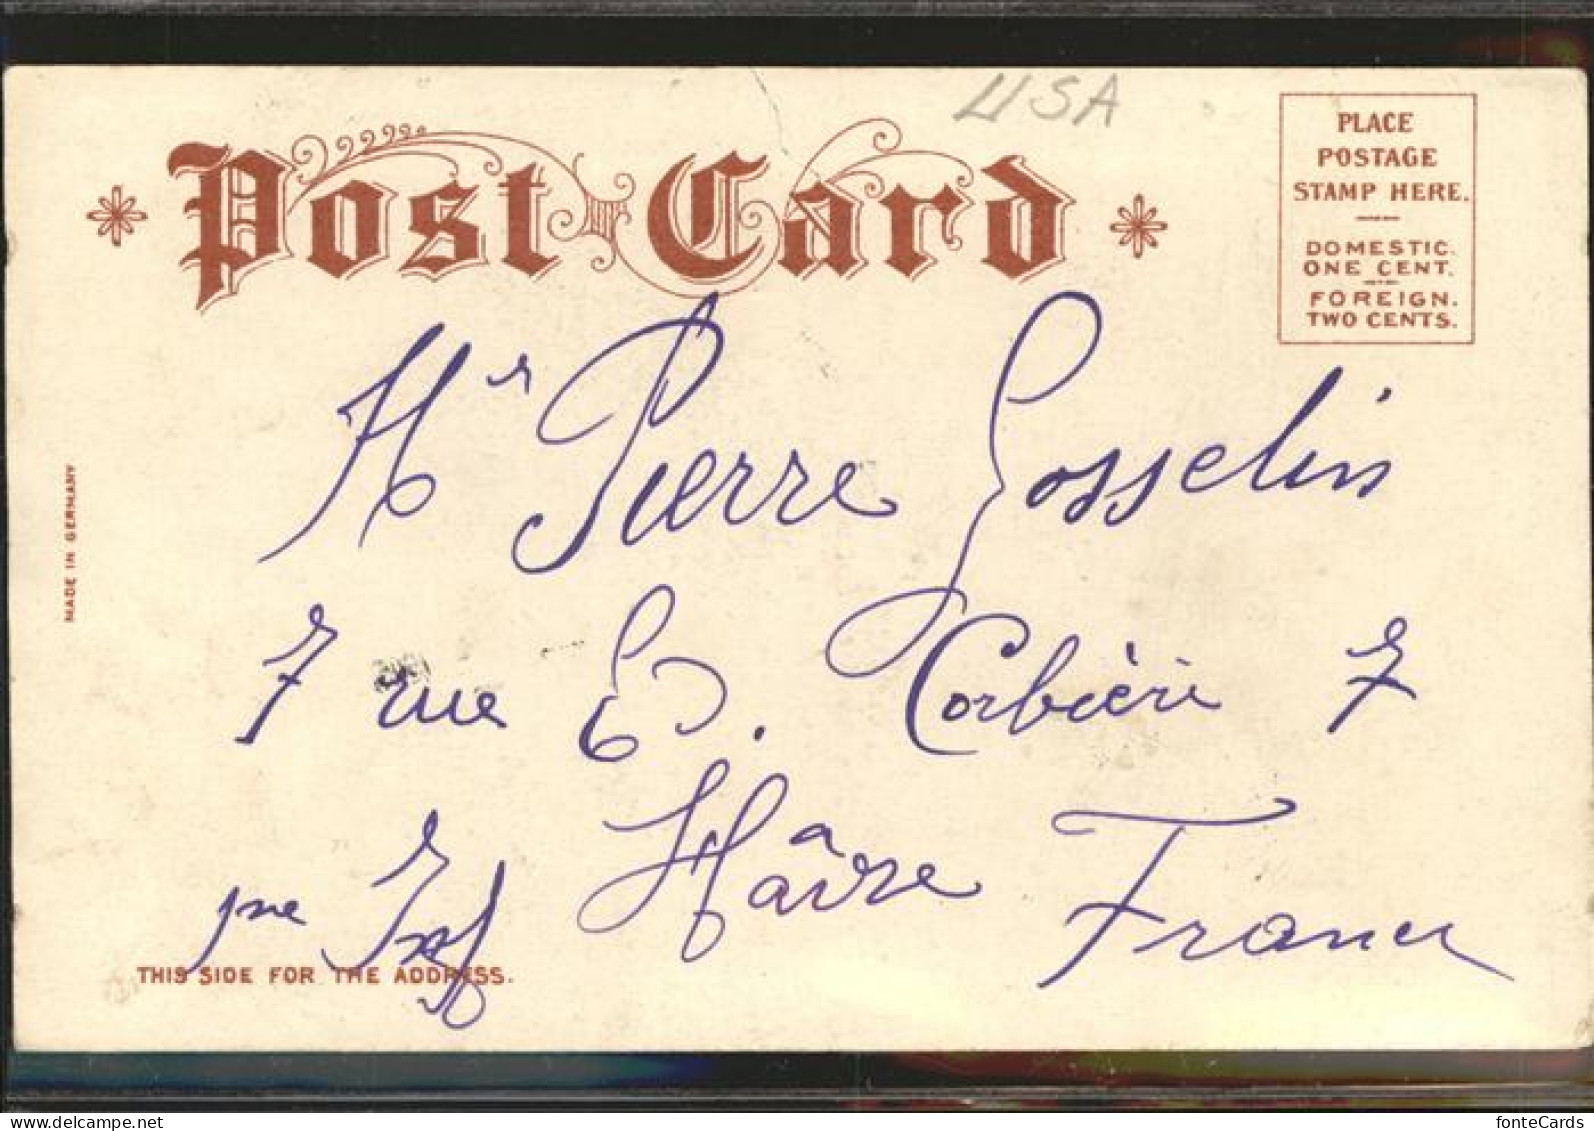 USA
Post Card
PLACE
POSTAGE
STAMP HERE.
DOMESTIC.
ONE CENT.
FOREIGN.
TWO CENTS.
Mr Pierre Gosselin
7 rue E. Corbière 7
Hâvre
France
MADE IN GERMANY
THIS SIDE FOR THE ADDRESS.
fonteCards